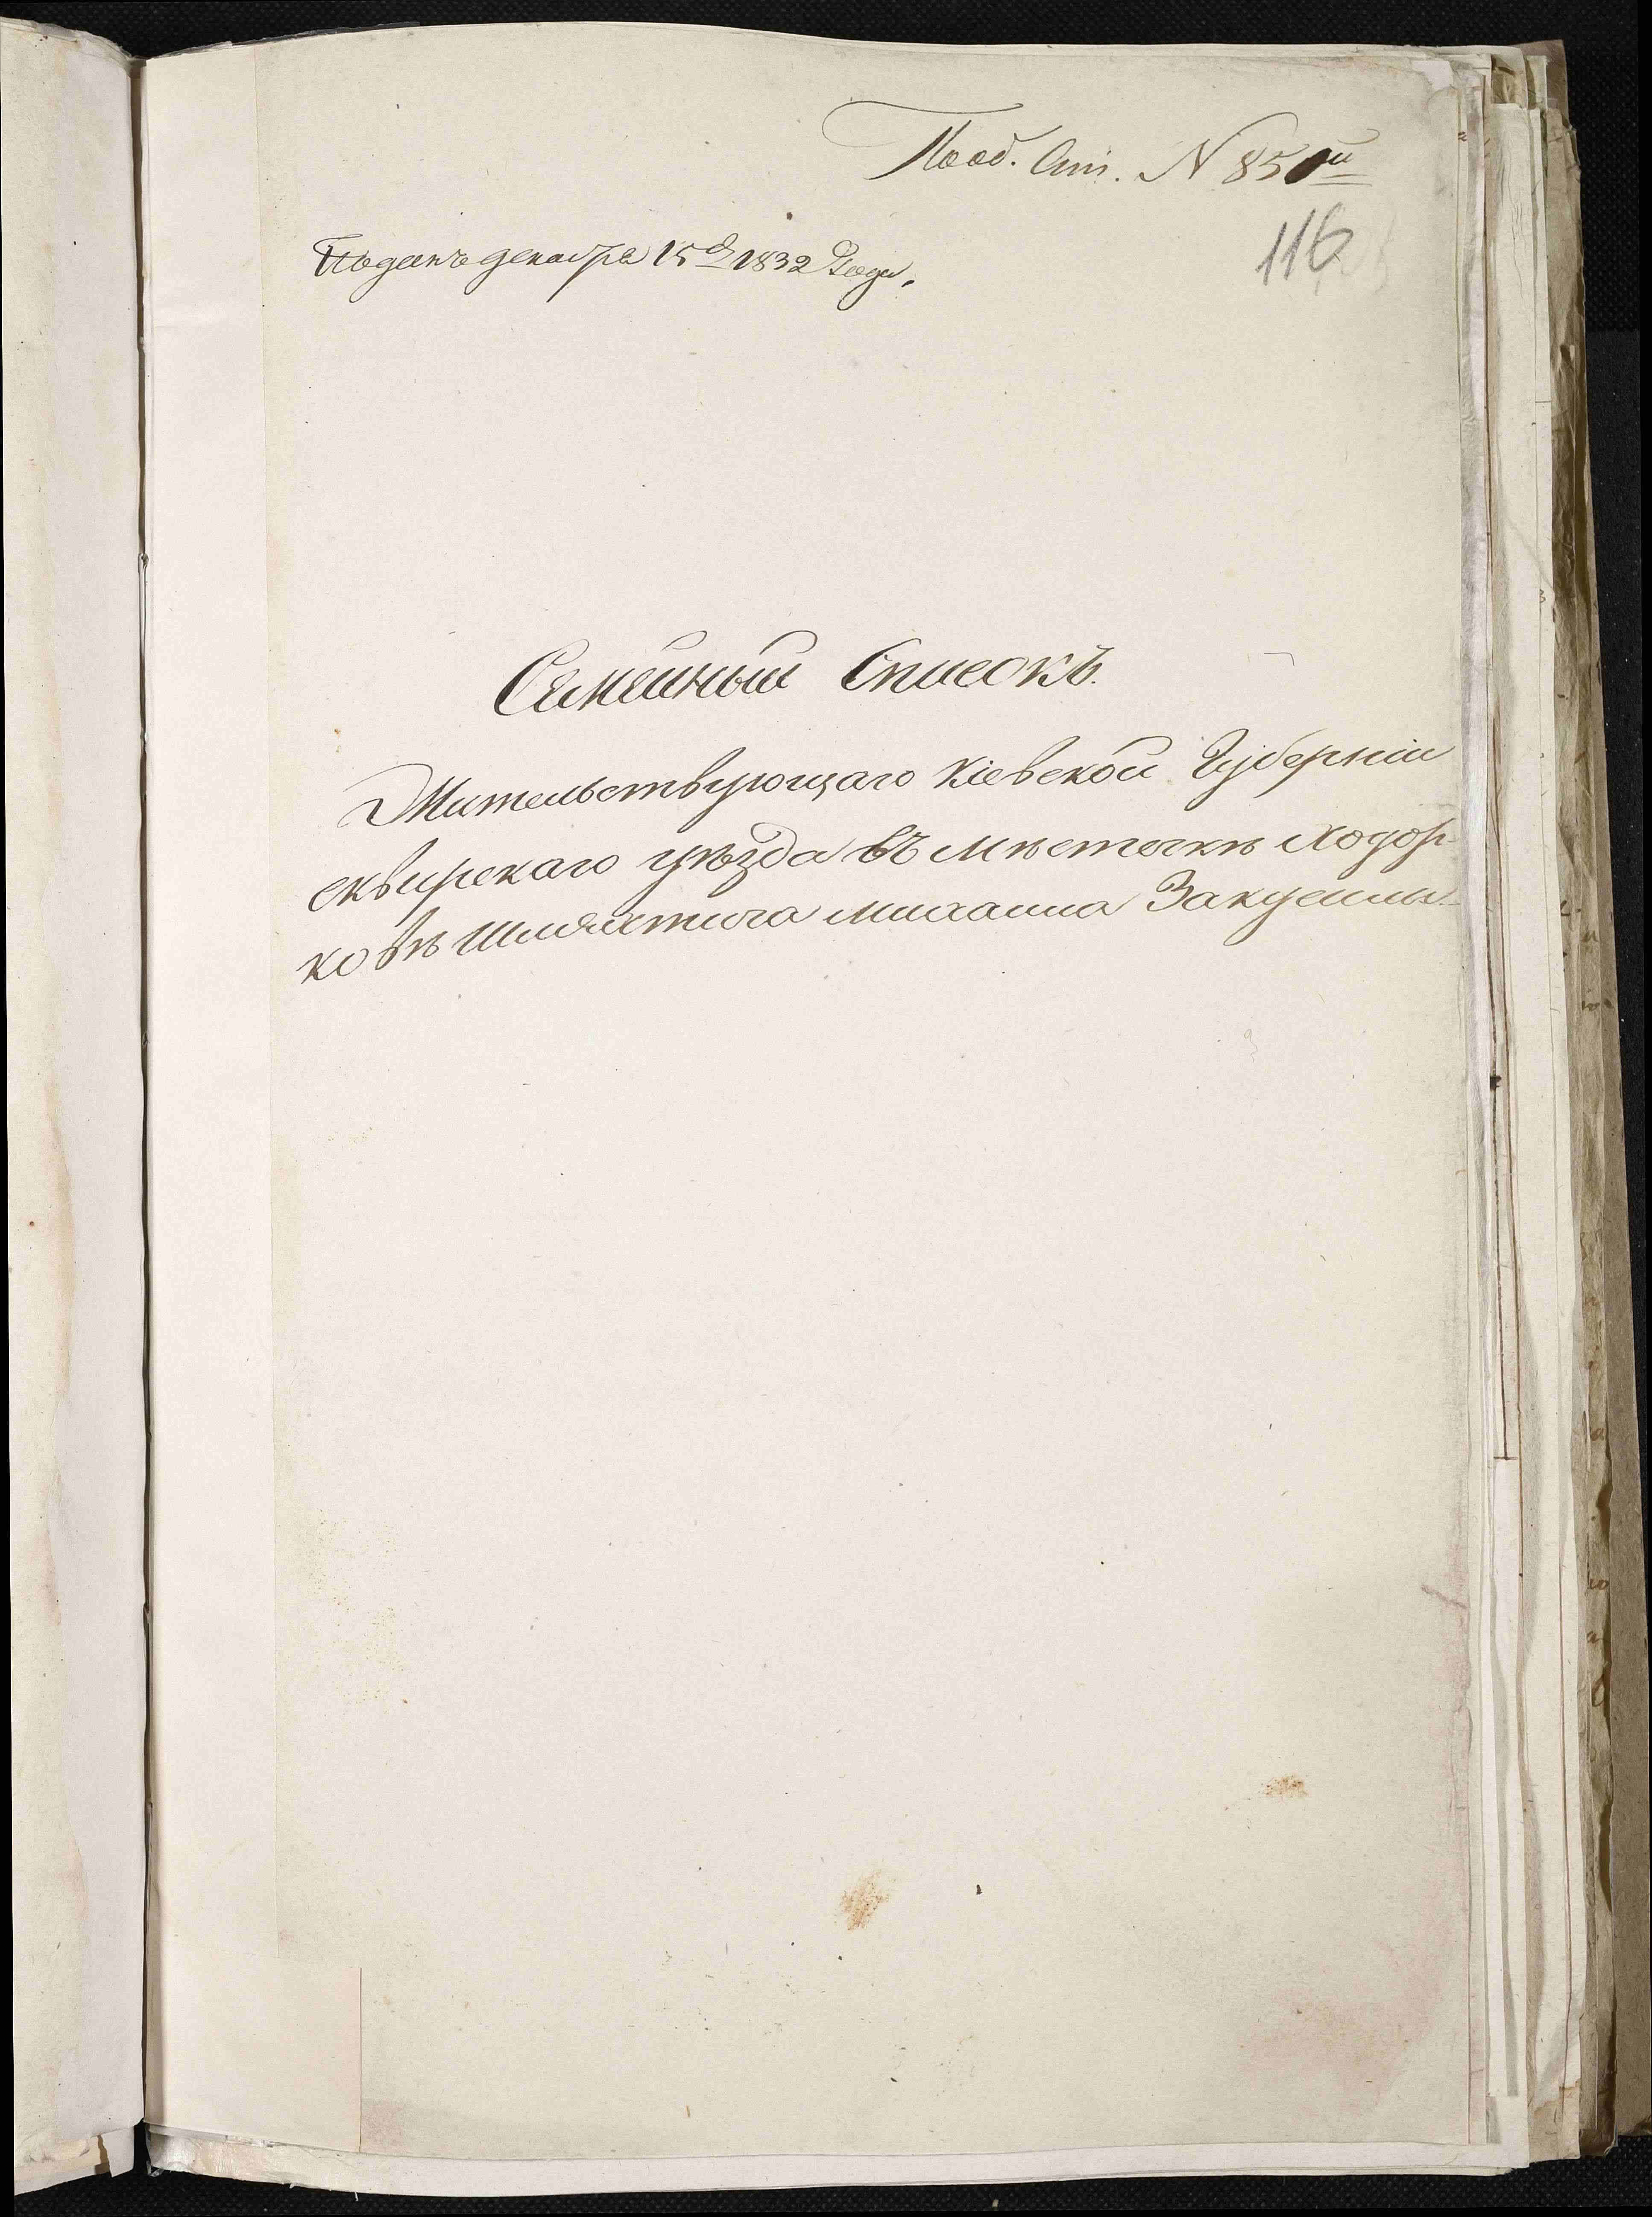 N 850й
116
Поданъ декабря 15д 1832 Года.
Семейный Списокъ.
Жительствующаго Кіевской Губерніи
сквирскаго уѣзда въ мѣстечкѣ Ходор-
ковѣ Шляхтича Михаила